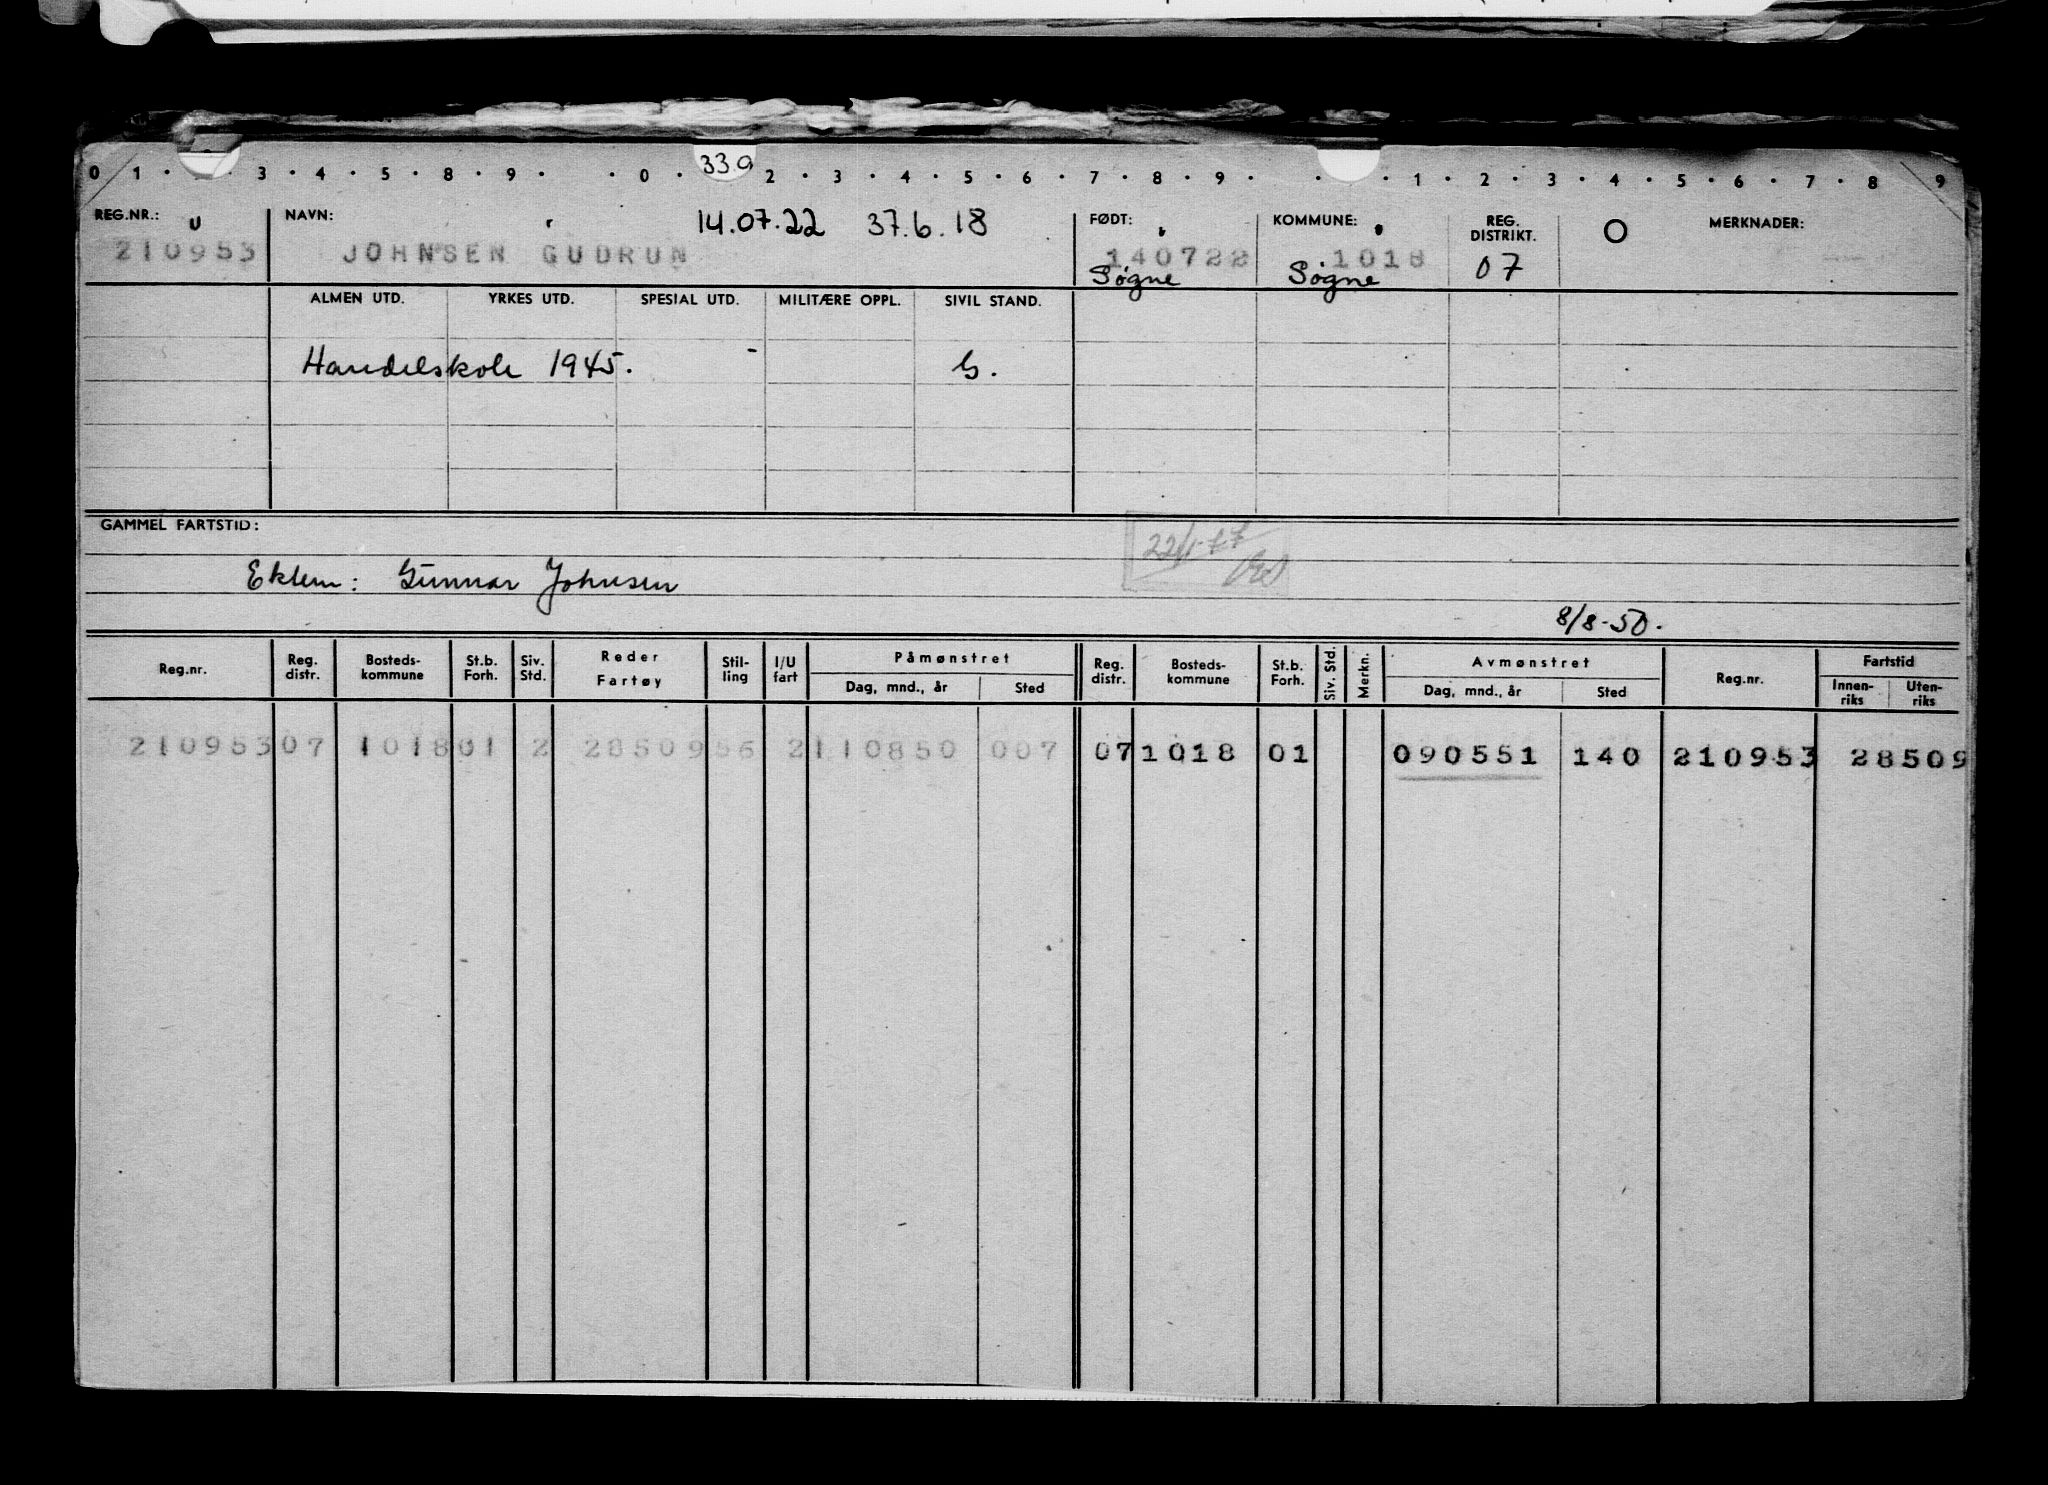 33a
0 1 · · 3 · 4 · 5 · 8 · 9 · · 0 · 2 · 3 · 4 · 5 · 6 · 7 · 8 · 9 · · · 1 · 2 · 3 · 4 · 5 · 6 · 7 · 8 9
REG.NR.: U NAVN: 14.07.22 37.6.18 FØDT: KOMMUNE: REG. DISTRIKT. O MERKNADER:
210953 JOHNSEN GUDRUN 140722 1018 07
Søgne Søgne
ALMEN UTD. YRKES UTD. SPESIAL UTD. MILITÆRE OPPL. SIVIL STAND.
Handelskole 1945. - G.
GAMMEL FARTSTID:
Ektem: Gunnar Johnsen
8/8-50.
Reg.nr. Reg. distr. Bosteds-kommune St.b. Forh. Siv. Std. Reder Fartøy Stil-ling I/U fart Påmønstret Reg. distr. Bosteds-kommune St.b. Forh. Siv. Std. Merkn. Avmønstret Reg.nr. Fartstid
Dag, mnd., år Sted Dag, mnd., år Sted Innen-riks Uten-riks
210953 07 1018 01 2 28509 56 2 110850 007 07 1018 01 090551 140 210953 28509